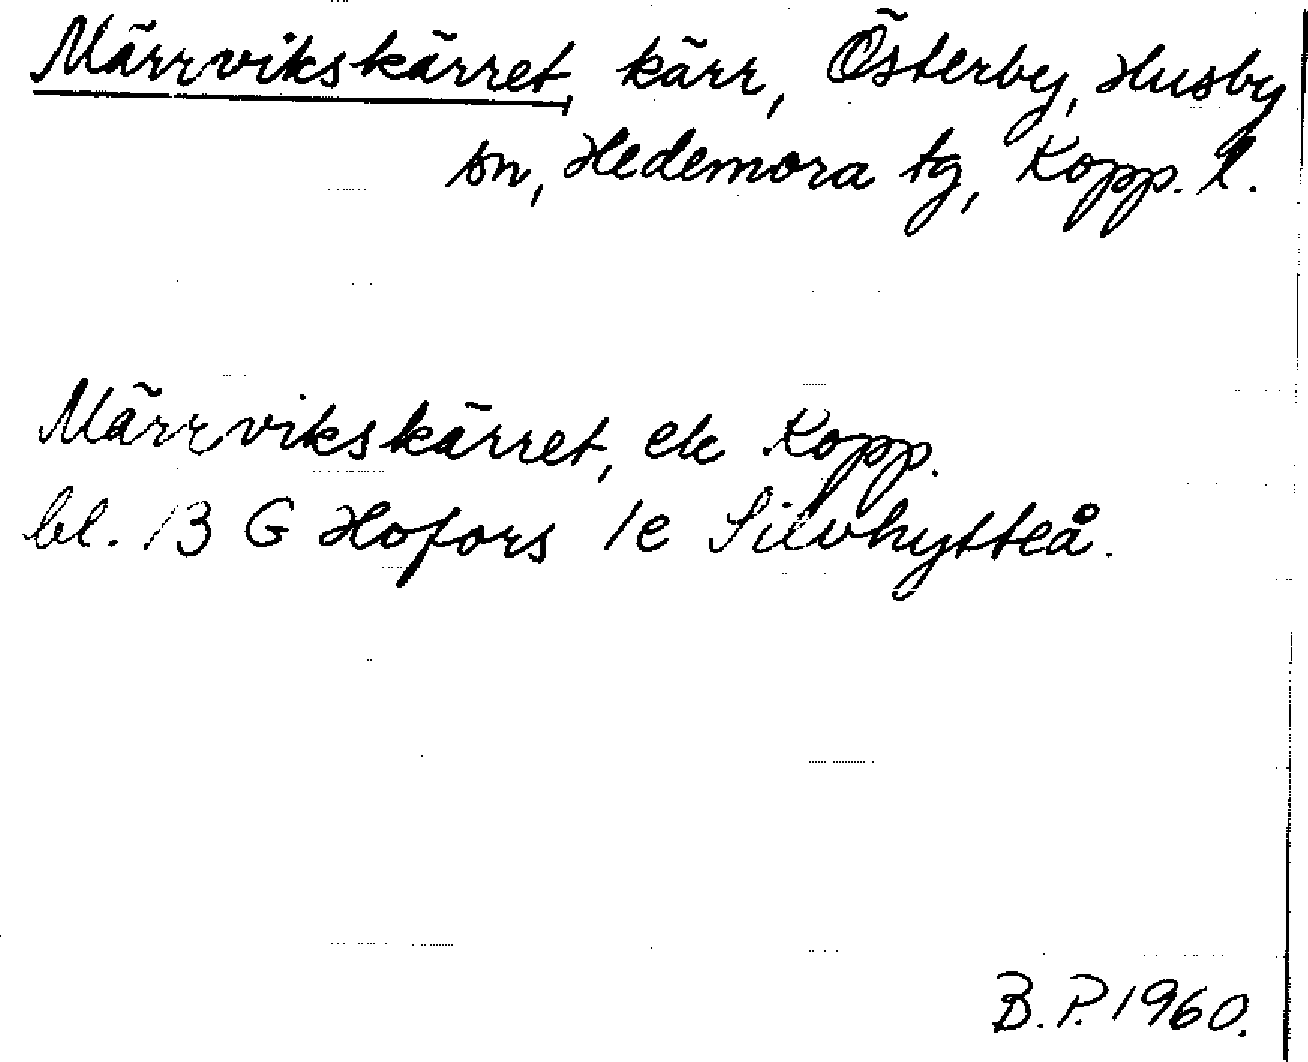 Märrvikskärret, kärr, Österby, Husby
sn, Hedemora tg, Kopp. l.
Märrvikskärret, ek Kopp.
bl. 13 G Hofors 1e Silvhytteå.
B. P. 1960.